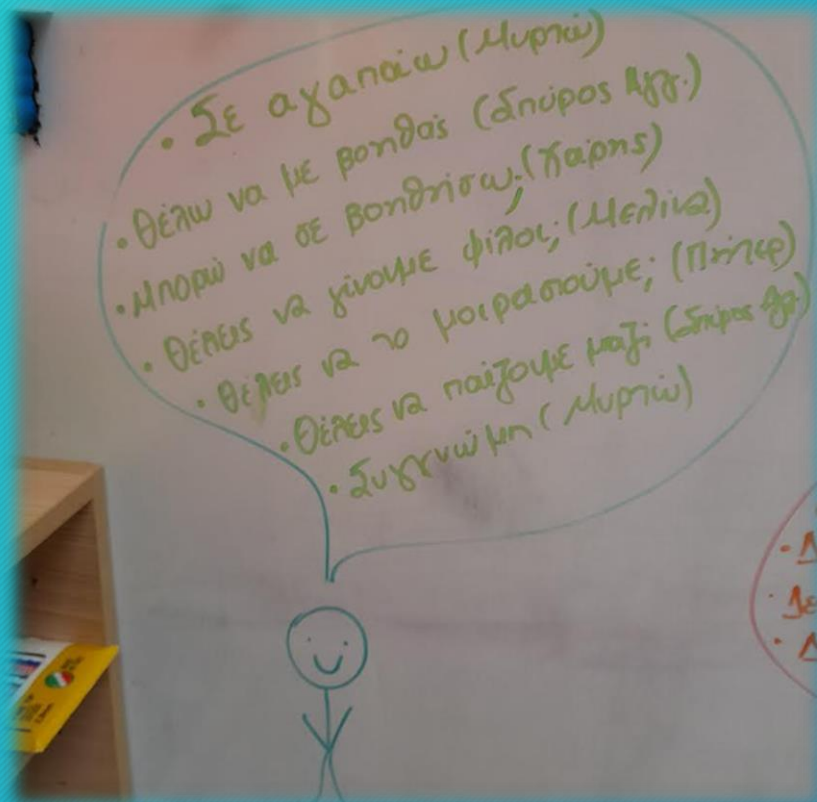 • Σε αγαπάω (Μυρτώ)
• Θέλω να με βοηθάς (Σπύρος Αγγ.)
• Μπορώ να σε βοηθήσω; (Χάρης)
• Θέλεις να γίνουμε φίλοι; (Μελίνα)
• Θέλεις να το μοιραστούμε; (Πήτερ)
• Θέλεις να παίζουμε μαζί; (Σπύρος Αγγ)
• Συγγνώμη (Μυρτώ)